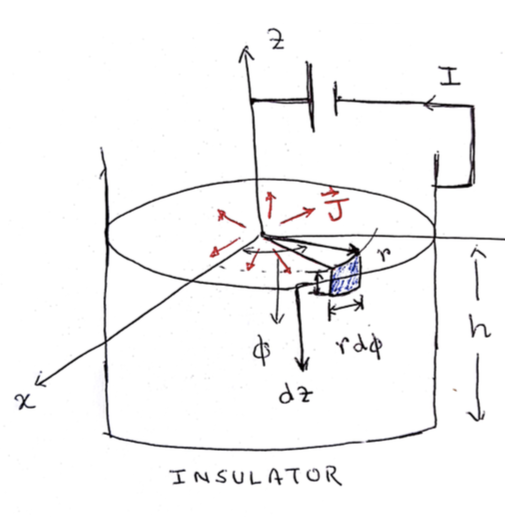 z
I
J
r
h
ϕ
rdϕ
dz
x
INSULATOR